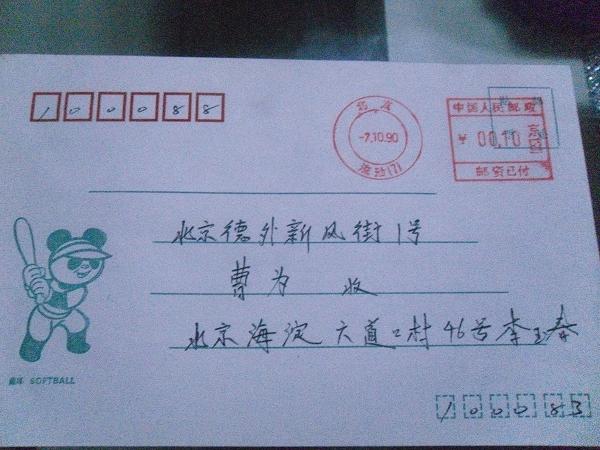 100088
北京
-7.10.90
中国人民邮政
¥ 00.10
邮资已付
北京德外新风街1号
曹为 收
北京海淀六道口村46号李玉春
垒球 SOFTBALL
100083